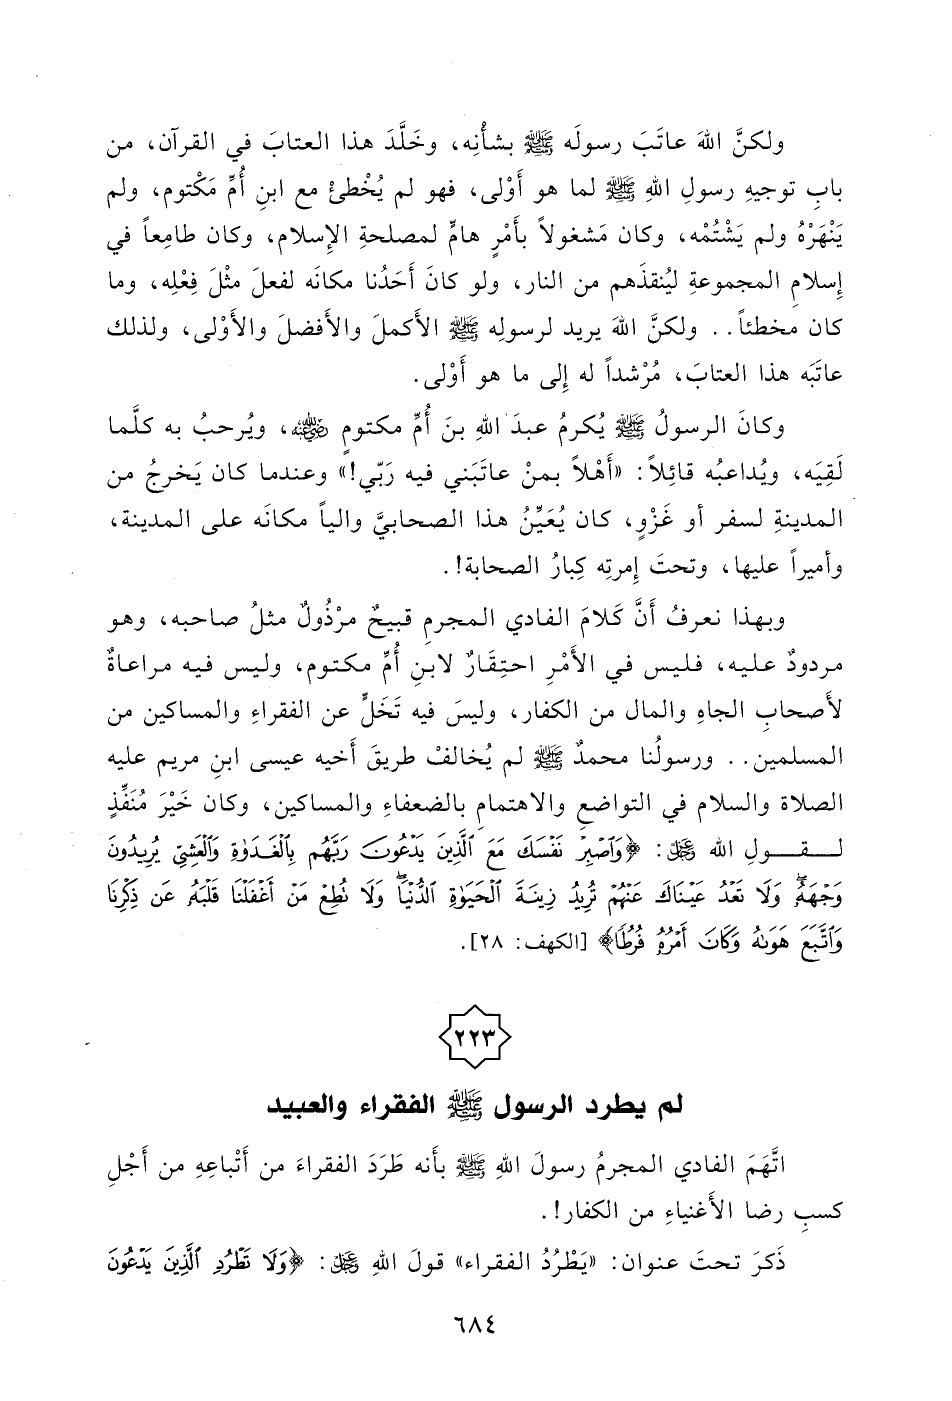 ولكنَّ اللهَ عاتَبَ رسولَه ﷺ بشأْنِه، وخَلَّدَ هذا العتابَ في القرآن، من
بابِ توجيهِ رسولِ اللهِ ﷺ لما هو أَوْلى، فهو لم يُخْطئْ مع ابنِ أُمِّ مَكْتوم، ولم
يَنْهَرْهُ ولم يَشْتُمْه، وكان مَشغولاً بأَمْرٍ هامٍّ لمصلحةِ الإِسلام، وكان طامِعاً في
إِسلامِ المجموعةِ ليُنقذَهم من النار، ولو كانَ أَحَدُنا مكانَه لفعلَ مثْلَ فِعْلِه، وما
كان مخطئاً.. ولكنَّ اللهَ يريد لرسولِه ﷺ الأكملَ والأَفضلَ والأَوْلى، ولذلك
عاتَبَه هذا العتابَ، مُرْشداً له إِلى ما هو أَوْلى.
وكانَ الرسولُ ﷺ يُكرمُ عبدَ اللهِ بنَ أُمِّ مكتومٍ رضي الله عنه، ويُرحبُ به كلَّما
لَقِيَه، ويُداعبُه قائِلاً: «أَهْلاً بمنْ عاتَبَني فيه رَبّي!» وعندما كان يَخرجُ من
المدينةِ لسفر أو غَزْوٍ، كان يُعَيِّنُ هذا الصحابيَّ والياً مكانَه على المدينة،
وأميراً عليها، وتحتَ إِمرتِه كِبارُ الصحابة!.
وبهذا نعرفُ أَنَّ كَلامَ الفادي المجرمِ قبيحٌ مرْذُولٌ مثلُ صاحبه، وهو
مردودٌ عليه، فليس في الأَمْرِ احتِقَارٌ لابنِ أُمِّ مكتوم، وليس فيه مراعاةٌ
لأَصحابِ الجاهِ والمال من الكفار، وليسَ فيه تَخَلٍّ عن الفقراءِ والمساكين من
المسلمين.. ورسولُنا محمدٌ ﷺ لم يُخالفْ طريقَ أَخيه عيسى ابنِ مريم عليه
الصلاة والسلام في التواضعِ والاهتمام بالضعفاءِ والمساكين، وكان خَيْرَ مُنَفِّذٍ
لـقـولِ الله ﷻ: ﴿وَٱصۡبِرۡ نَفۡسَكَ مَعَ ٱلَّذِينَ يَدۡعُونَ رَبَّهُم بِٱلۡغَدَوٰةِ وَٱلۡعَشِيِّ يُرِيدُونَ
وَجۡهَهُۥۖ وَلَا تَعۡدُ عَيۡنَاكَ عَنۡهُمۡ تُرِيدُ زِينَةَ ٱلۡحَيَوٰةِ ٱلدُّنۡيَاۖ وَلَا نُطِعۡ مَنۡ أَغۡفَلۡنَا قَلۡبَهُۥ عَن ذِكۡرِنَا
وَٱتَّبَعَ هَوَىٰهُ وَكَانَ أَمۡرُهُۥ فُرُطٗا﴾ [الكهف: ٢٨].
٢٢٣
لم يطرد الرسول ﷺ الفقراء والعبيد
اتَّهَمَ الفادي المجرمُ رسولَ اللهِ ﷺ بأَنه طَرَدَ الفقراءَ من أَتْباعِهِ من أَجْلِ
كسبِ رضا الأَغنياءِ من الكفار!.
ذَكرَ تحتَ عنوان: «يَطْرُدُ الفقراء» قولَ اللهِ ﷻ: ﴿وَلَا تَطۡرُدِ ٱلَّذِينَ يَدۡعُونَ
٦٨٤